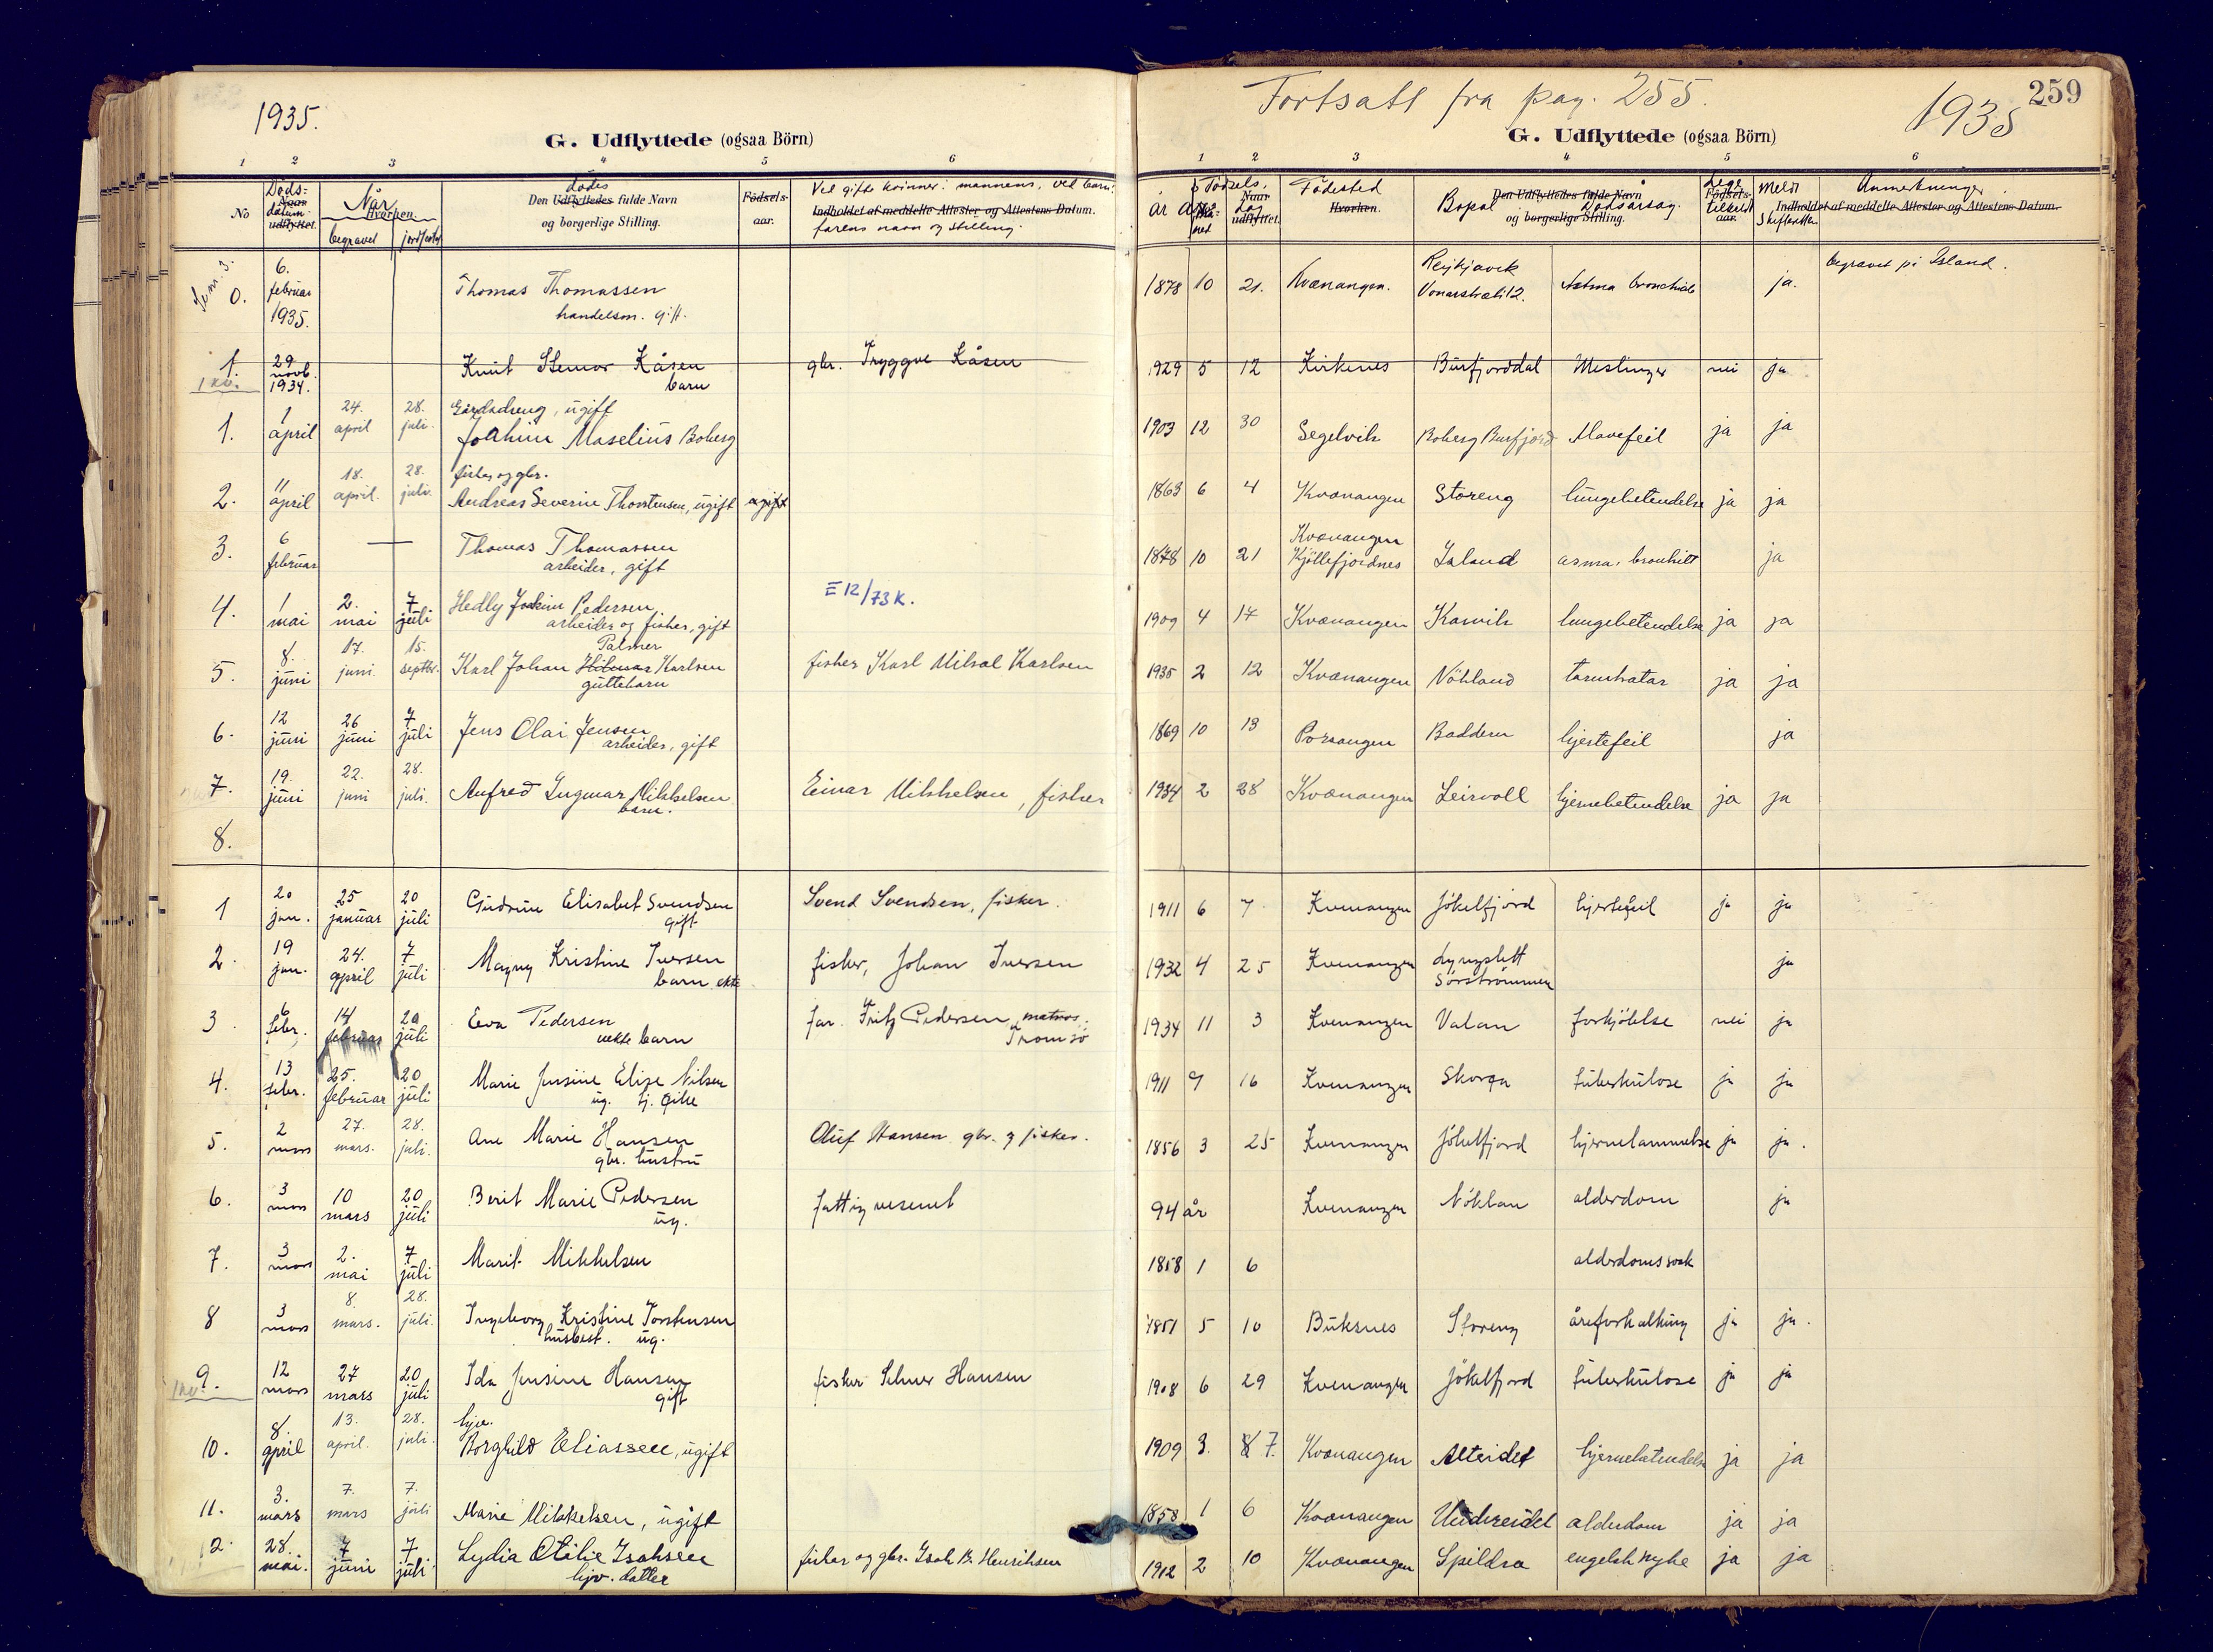 1935.
G. Udflyttede (ogsaa Börn)
1 2 3 4 5 6
No
Döds-
Naar
datum
udflyttet.
Når
Hvorhen.
begravet
jordfestet
dödes
Den Udflyttedes fulde Navn
og borgerlige Stilling.
Födsels-
aar.
Ved gifte kvinner: mannens, ved barn:
Indholdet af meddelte Attester og Attestens Datum.
farens navn og stilling.
0. 6. februar 1935. Thomas Thomassen
handelsm. gift.
1. 29 novb. 1934. Knut Stener Kåsen gbr. Tryggve Kåsen
1 kv. barn
1. 1 april 24. april 28. juli. Gårdsdreng, ugift
Joakim Moselius Boberg
2. 11 april 18. april. 28. juli. fisker og gbr.
Andreas Severin Thorstensen, ugift ugift
3. 6 februar — Thomas Thomassen
arbeider, gift
4. 1 mai 2. mai 7 juli Hedly Joakim Pedersen II 12/73 K.
arbeider og fisker, gift
5. 8. juni 17. juni. 15. septbr. Palmer
Karl Johan Hilmar Karlsen fisker Karl Mikal Karlsen
guttebarn
6. 12 juni 26 juni 7 juli Jens Olai Jensen
arbeider, gift
7. 19. juni 22. juni 28. juli. Anfred Ingmar Mikkelsen Einar Mikkelsen, fisker
barn.
8.
1 20 jan. 25 januar 20 juli Gudrun Elisabet Svendsen Svend Svendsen, fisker.
gift
2. 19 jan. 24. april 7 juli Magny Kristine Iversen fisker, Johan Iversen
barn ekte
3. 6 febr. 14 februar 20 juli Eva Pedersen far. Fritz Pedersen matros.
uekte barn Tromsö
4. 13 febr. 25. februar 20 juli Marie Jensine Elise Nilsen
ug. tj. pike
5. 2 mars 27. mars. 28. juli. Ane Marie Hansen Oluf Hansen gbr. og fisker.
gbr. hustru
6. 3 mars 10 mars 20 juli Berit Marie Pedersen fattigvesenet
ug.
7. 3 mars 2. mai 7 juli Marit Mikkelsen
8 3 mars 8. mars. 28. juli. Ingeborg Kristine Torstensen
husbest. ug.
9. 12 mars 27 mars 20 juli Ida Jensine Hansen fisker Selmer Hansen
1 kv. gift
10. 8. april 13. april. 28. juli. hjv.
Borghild Eliassen, ugift
11. 3. mars 7. mars 7. juli Marie Mikkelsen, ugift
12. 28. mai. 7 juni 7 juli Lydia Otilie Isaksen fisker og gbr. Isak B. Henriksen
hjv. datter
Fortsatt fra pag. 255.
259
1935
G. Udflyttede (ogsaa Börn)
1 2 3 4 5 6
Födsels.
år
Må-
ned
Naar
dag
udflyttet.
Födested
Hvorhen.
Bopel
Den Udflyttedes fulde Navn
Dödsårsag.
og borgerlige Stilling.
Lege
Födsels-
tilkaldt
aar.
Meldt
Skifteretten
Anmerkninger.
Indholdet af meddelte Attester og Attestens Datum.
1878 10 21. Kvænangen. Reykjavik Vonarstræti 12. Astma bronchiale ja. begravet på Island.
1929 5 12 Kirkenes Burfjorddal Meslinger nei ja
1903 12 30 Segelvik Boberg Burfjord Mavefeil ja ja
1863 6 4 Kvænangen Storeng lungebetendelse ja ja
1878 10 21 Kvænangen Kjöllefjordnes Island asma. bronkitt ja
1909 4 17 Kvænangen Karvik lungebetendelse ja ja
1935 2 12 Kvænangen Nökland tarmkatar ja ja
1869 10 13 Porsangen Baddern hjertefeil ja
1934 2 28 Kvænangen Leirvoll hjernebetendelse ja ja
1911 6 7 Kvenangen Jökelfjord hjertefeil ja ja
1932 4 25 Kvenangen Lyngslett Sörströmmen ja
1934 11 3 Kvenangen Valan forkjölelse nei ja
1911 9 16 Kvenangen Skorpa tuberkulose ja ja
1856 3 25 Kvenangen Jökelfjord hjernelammelse ja ja.
94 år Kvenangen Nöklan alderdom ja
1858 1 6 alderdomssvak
1851 5 10 Buksnes Storeng åreforkalking ja ja.
1908 6 29 Kvenangen Jökelfjord tuberkulose ja ja
1909 3. 8 7. Kvænangen Alteidet hjernebetendelse ja ja
1858 1 6 Kvænangen Undereidet alderdom ja ja
1912 2 10 Kvænangen Spildra engelsk syke ja ja